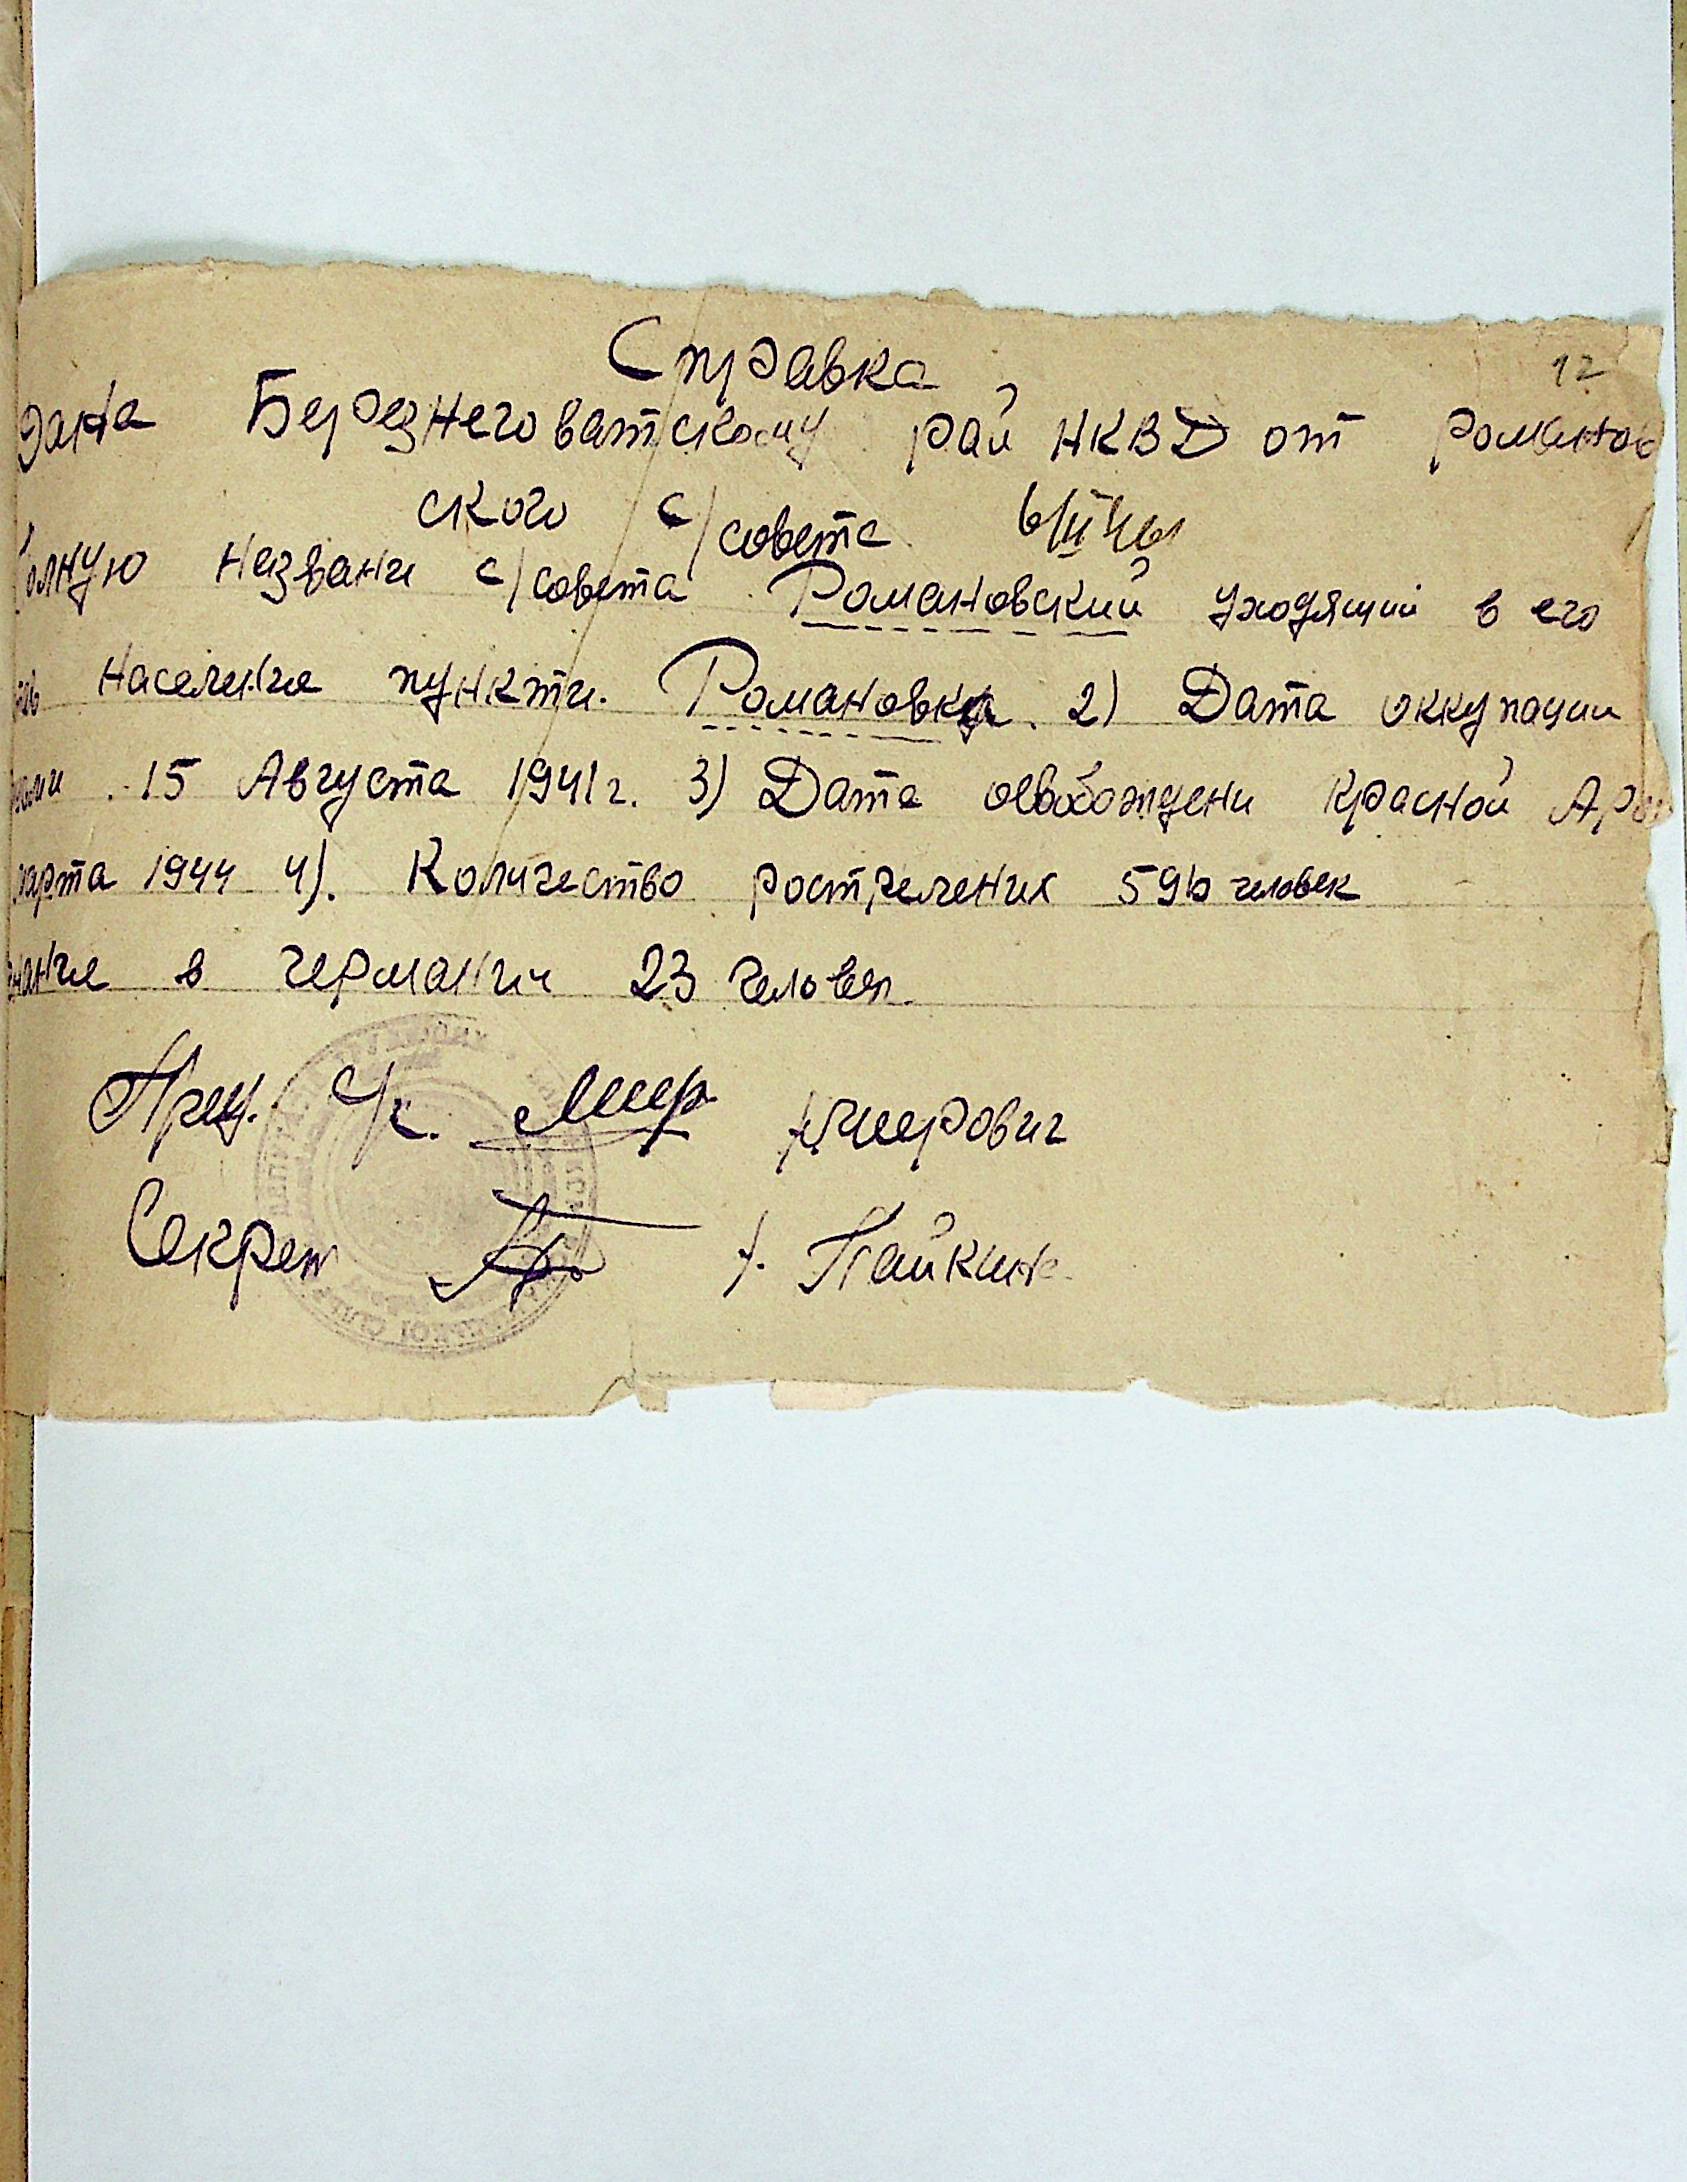 12
Справка
дана Березнеговатскому рай НКВД от Романов
ского с/совета
полную названи с/совета Романовский уходящий в его
населеные пункти. Романовка. 2) Дата оккупации
15 Августа 1941 г. 3) Дата освобождени Красной Арм
марта 1944 4). Количество рострелених 596 человек
в германии 23 человек.
Пред. с/с.
Секрет /. Пайкина